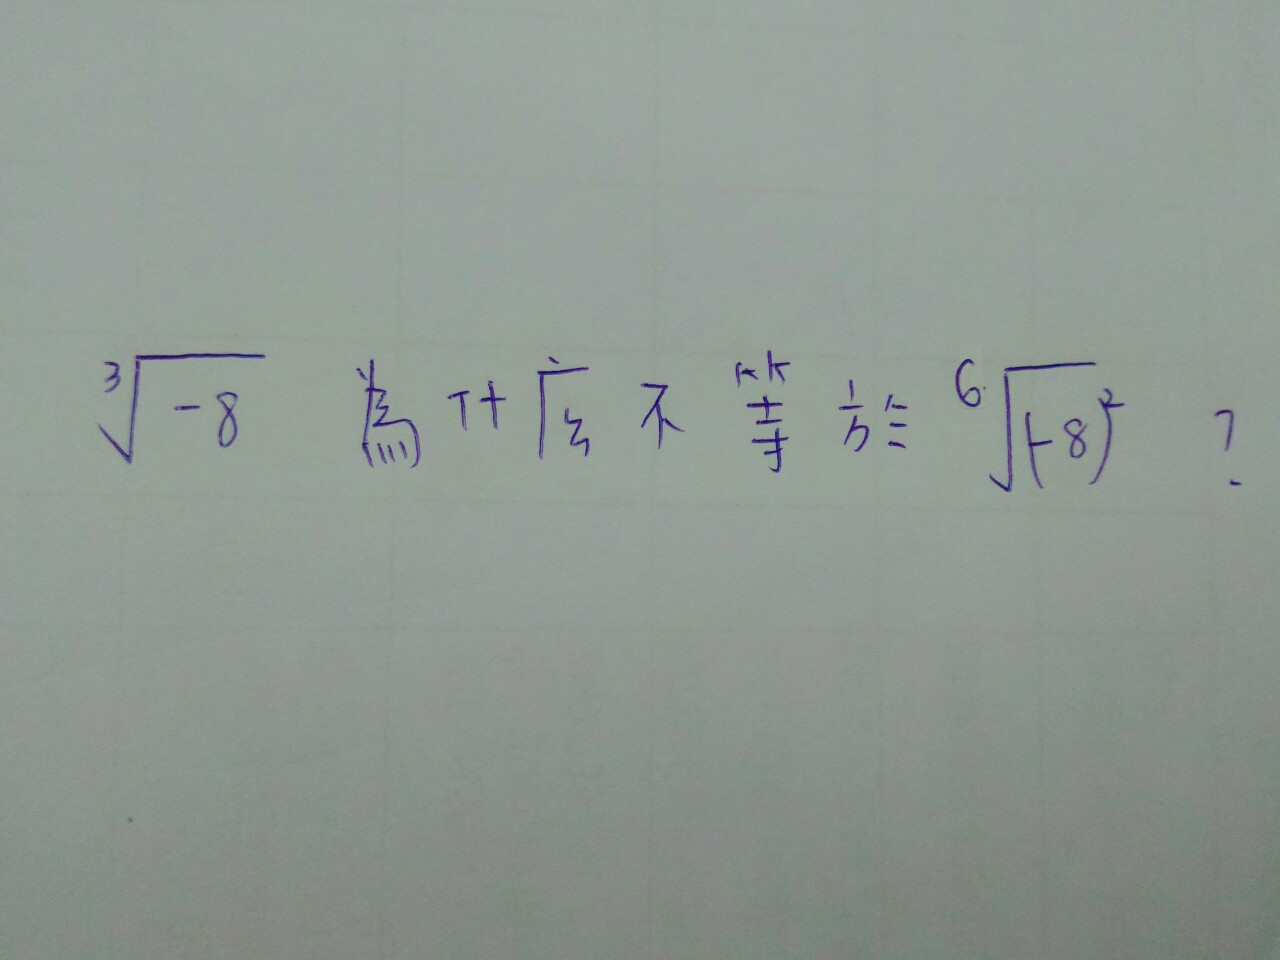 ∛-8 為什麼不等於 ⁶√(-8)² ?